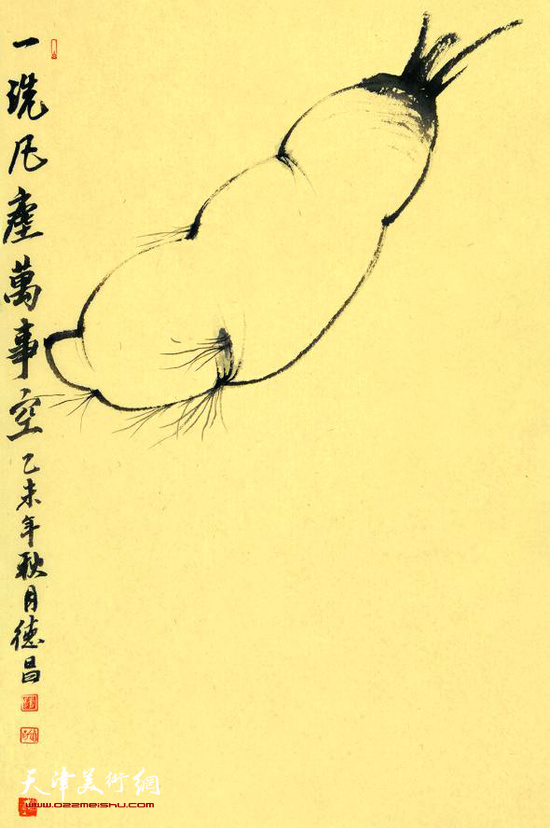 一洗凡塵萬事空
乙未年秋月德昌
天津美術網
www.022meishu.com